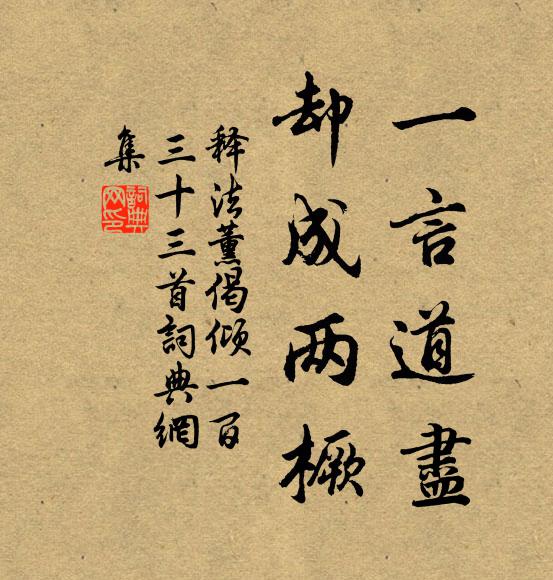 一言道盡
却成两橛
释法薰偈倾一百
三十三首詞典網
集
詞典
网印